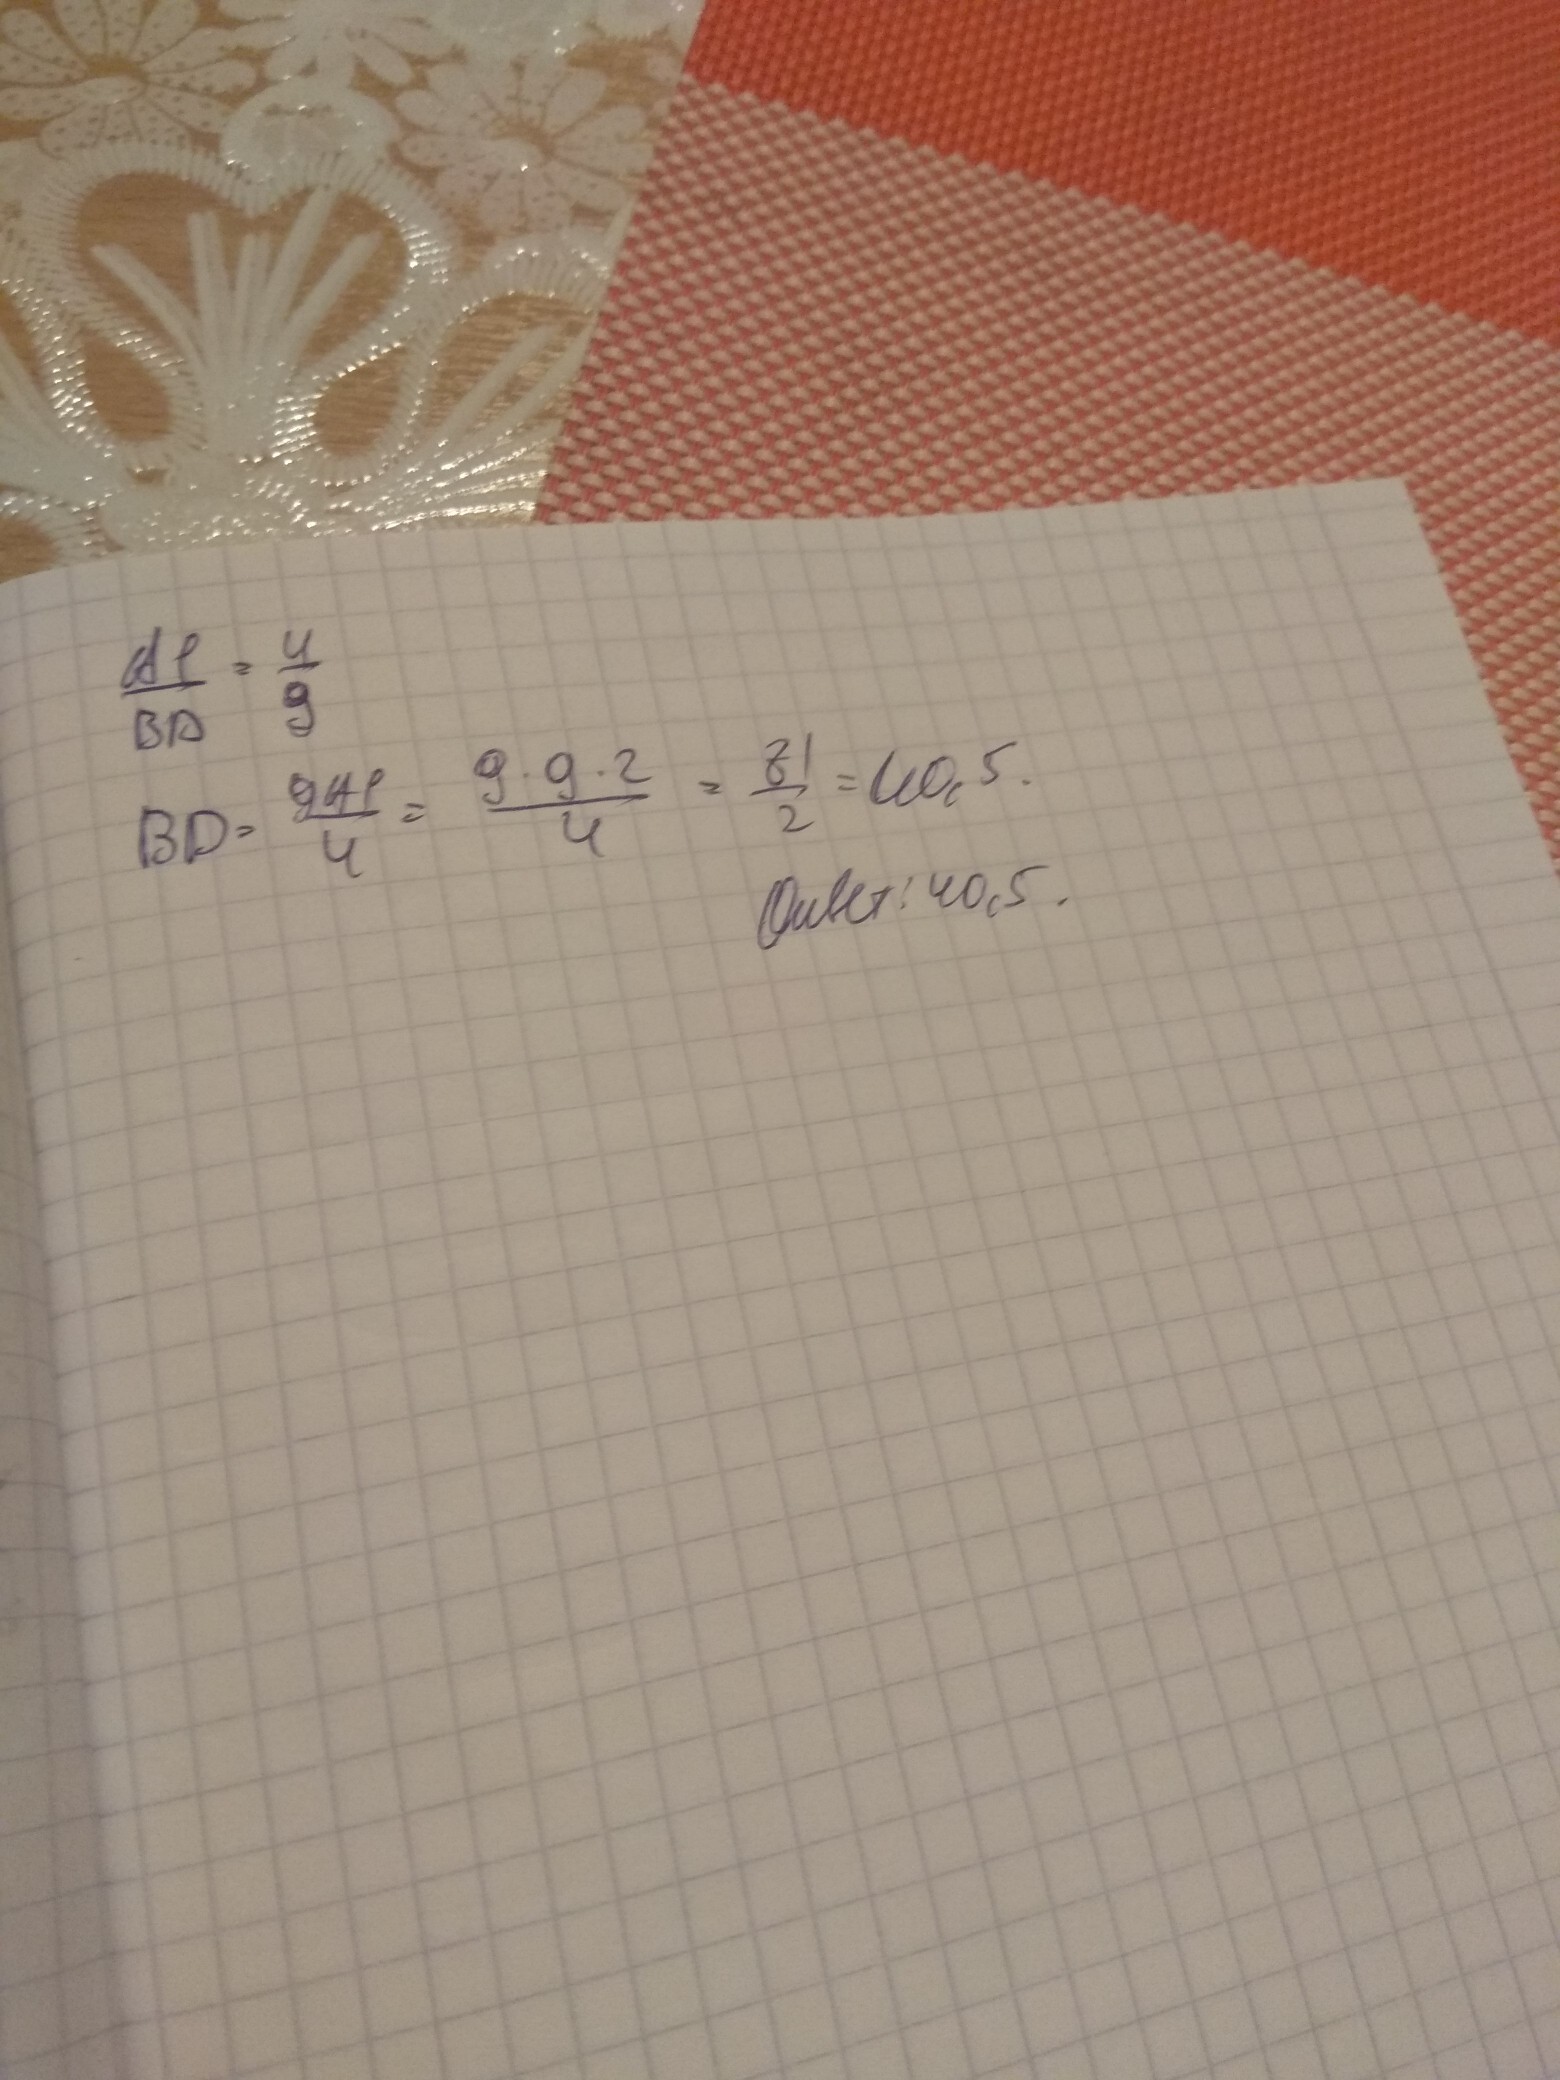 AP/BD = 4/9
BD = 9AP/4 = 9·9·2/4 = 81/2 = 40,5.
Ответ: 40,5.